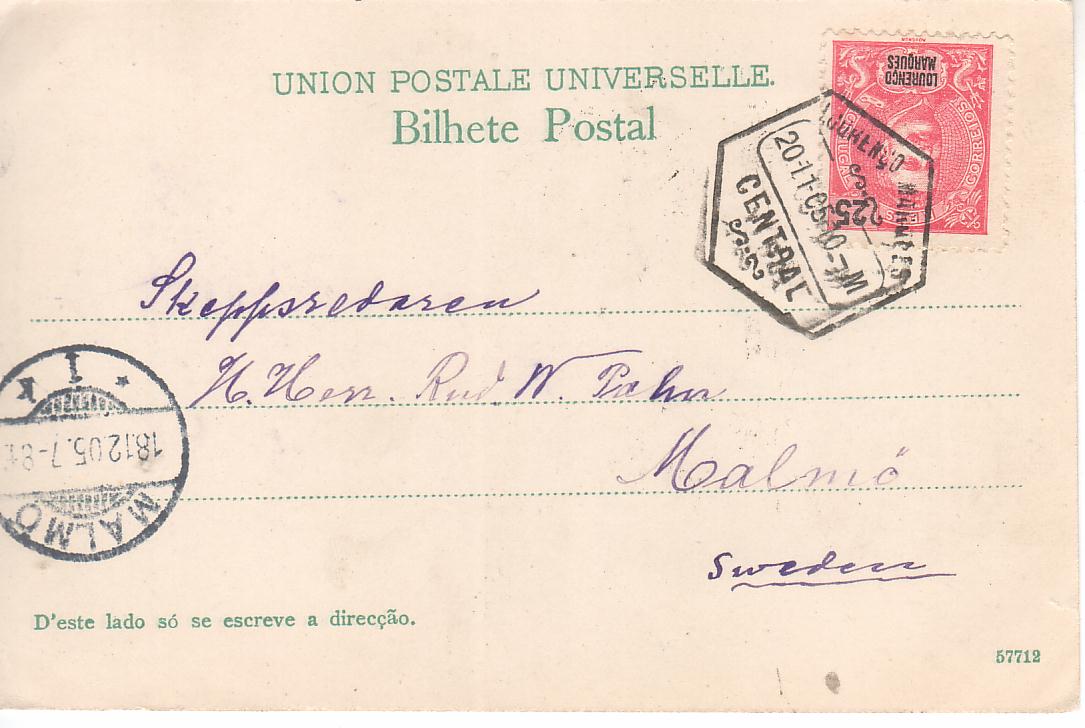 UNION POSTALE UNIVERSELLE.
Bilhete Postal
LOURENÇO
MARQUES
PORTUGAL
CORREIOS
25
CENTRAL
20-11-05
Skeppsredaren
H. Herr. Rud. W.
Malmö
Sweden
1 k
18.12.05. 7-8
MALMÖ
D'este lado só se escreve a direcção.
57712